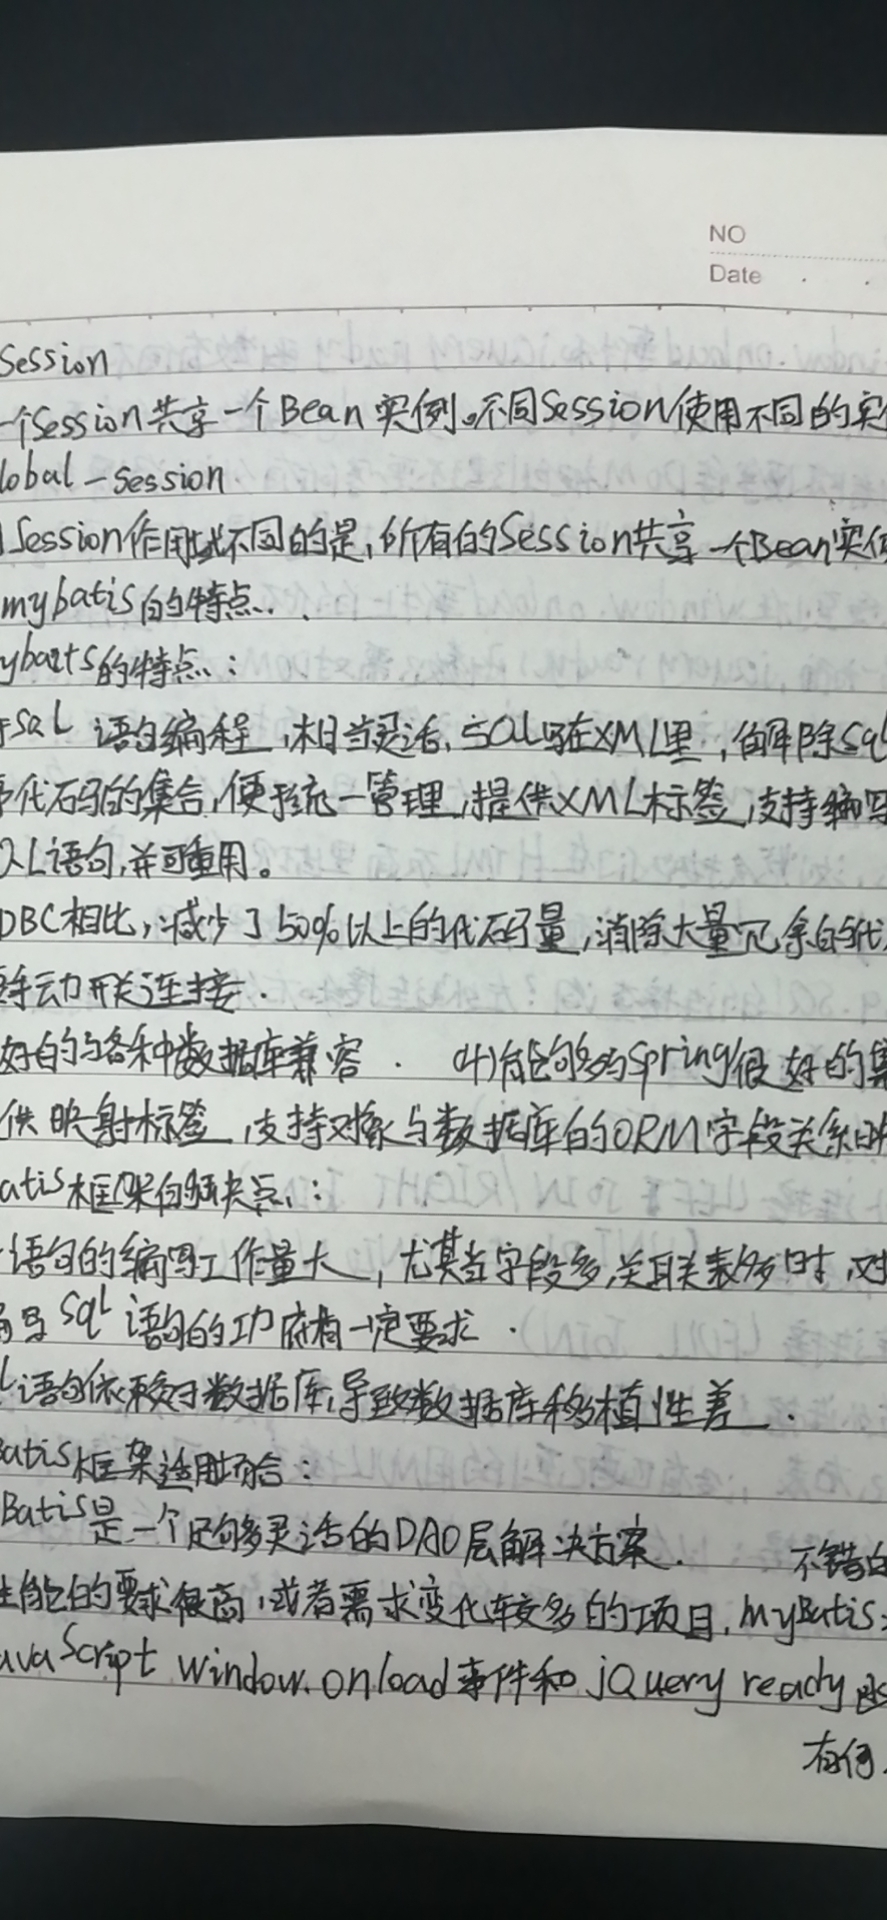 NO
Date
Session
一个Session共享一个Bean实例。不同Session使用不同的实
lobal-Session
Session作用域不同的是,所有的Session共享一个Bean实例
mybatis的特点.
ybaits的特点:
于sql 语句编程,相当灵活,SQL写在XML里,解除sql
序代码的集合,便于统一管理,提供XML标签,支持编写
QL语句,并可重用。
DBC相比,减少了50%以上的代码量,消除大量冗余的代
手动开关连接.
好的与各种数据库兼容. (4)能够与Spring很好的集
供映射标签,支持对象与数据库的ORM字段关系映
atis框架的缺点:
语句的编写工作量大,尤其当字段多,关联表多时,对
编写sql语句的功底有一定要求.
L语句依赖于数据库,导致数据库移植性差.
Batis框架适用场合:
Batis是一个足够灵活的DAO层解决方案. 不错的
性能的要求很高,或者需求变化较多的项目,myBatis
avaScript window.onload事件和jQuery ready函
有何